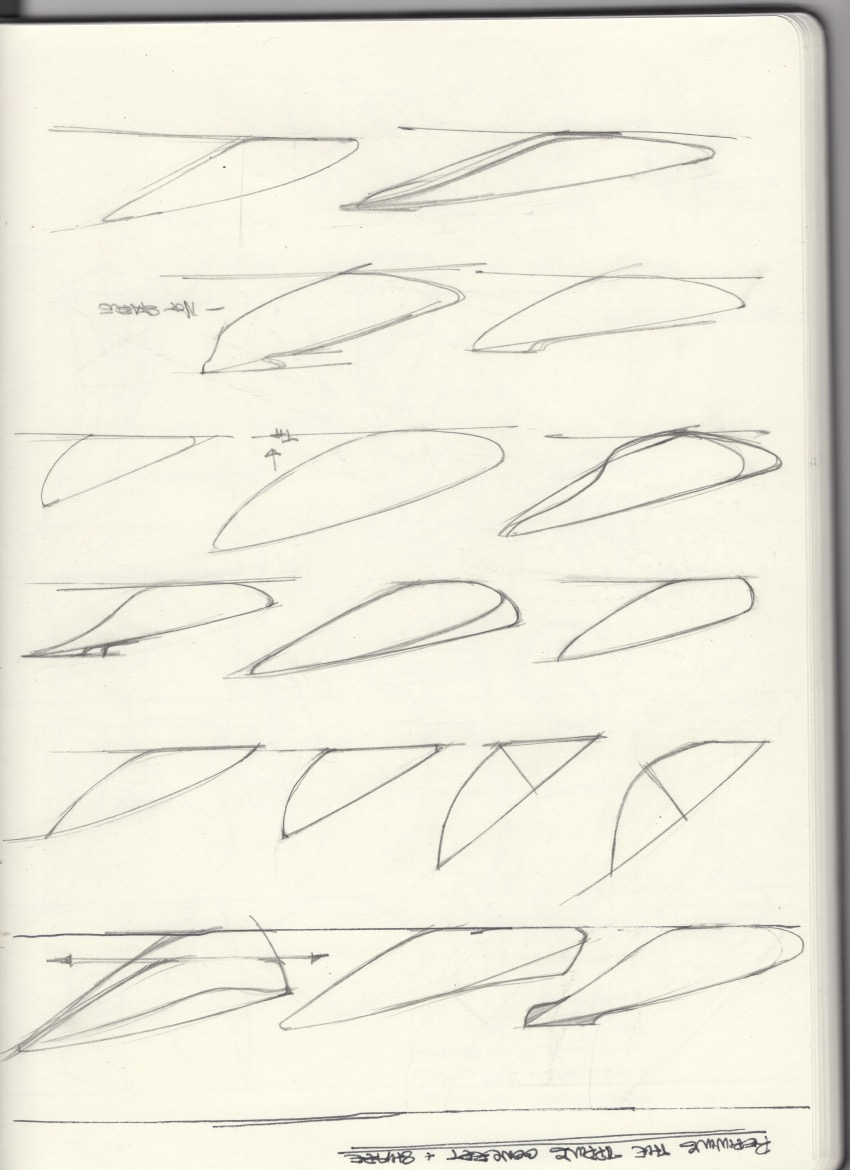 REFINING THE TIPPING CONCEPT + SHAPE
TIP
NOT STABLE